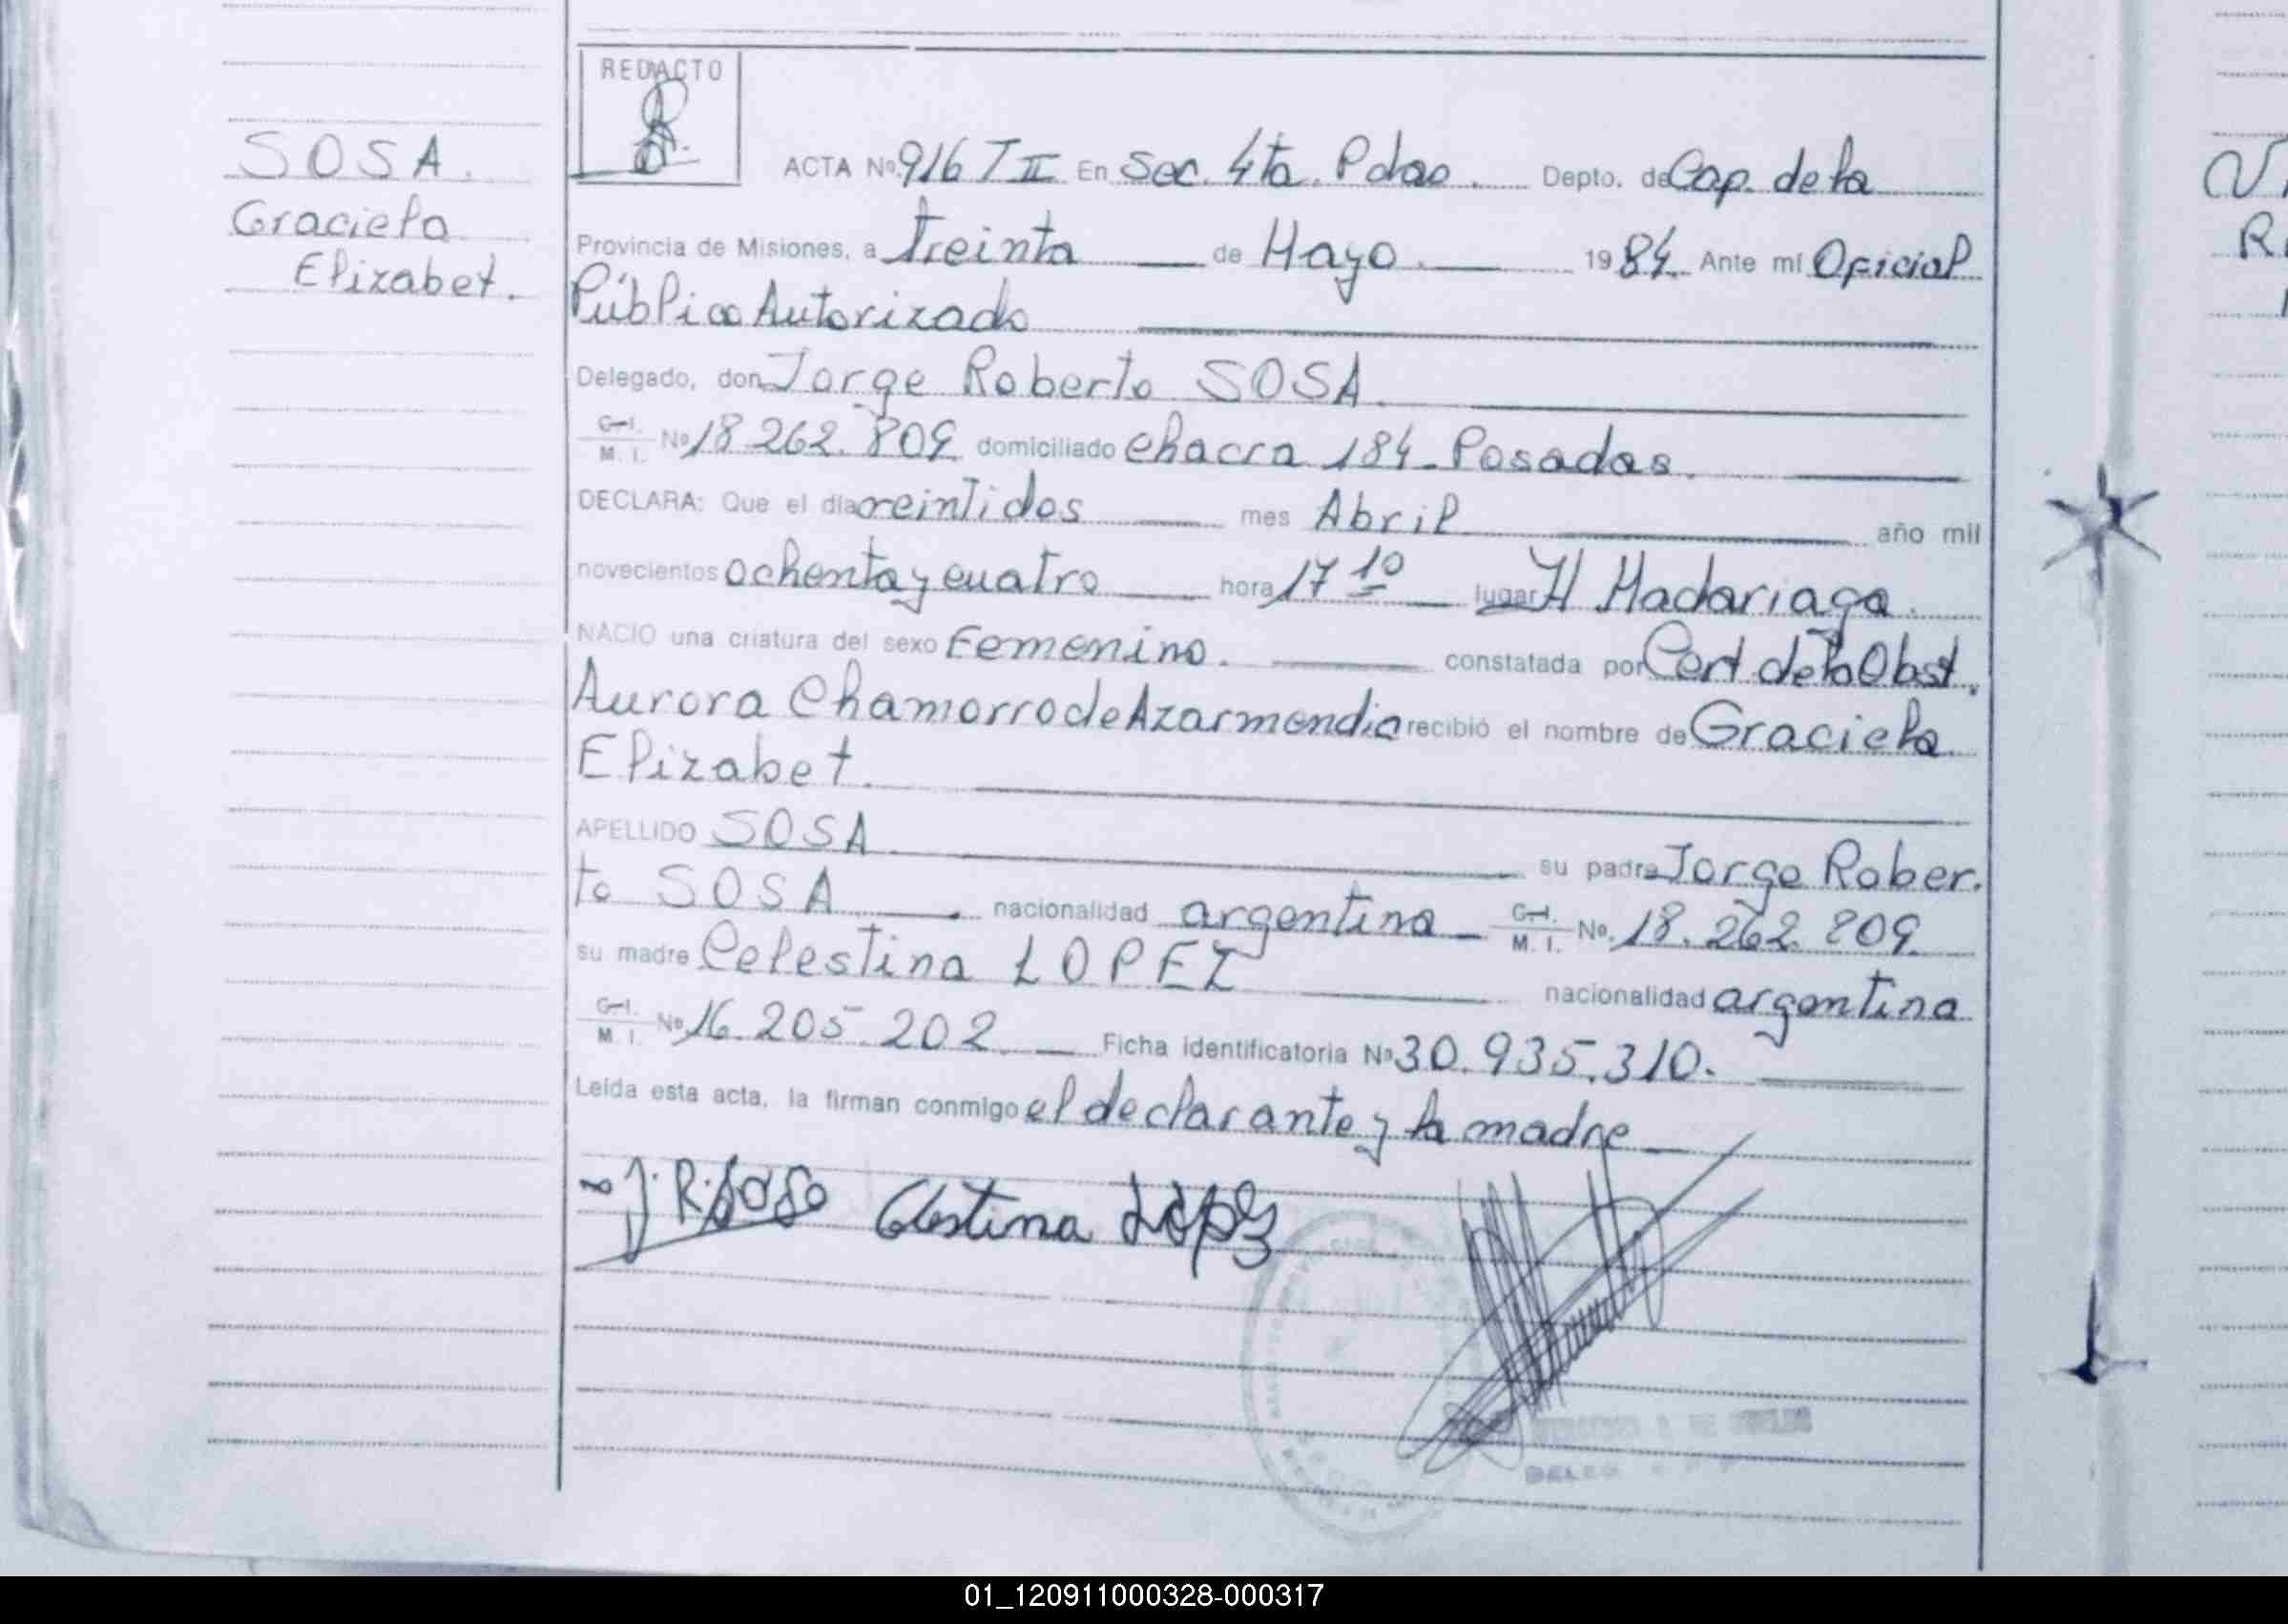 REDACTO
SOSA.
Graciela
Elizabet.
ACTA Nº 916 T II En Sec. 4ta. Pdas. Depto. de Cap. de la
Provincia de Misiones, a treinta de Mayo. 1984. Ante mí Oficial
Público Autorizado
Delegado, don Jorge Roberto SOSA.
C.I. M. I. Nº 18.262.809 domiciliado chacra 184 - Posadas.
DECLARA: Que el día veintidos mes Abril año mil
novecientos ochenta y cuatro hora 17 10 lugar H Madariaga.
NACIO una criatura del sexo Femenino. constatada por Cert de la Obst.
Aurora Chamorro de Azarmendia recibió el nombre de Graciela
Elizabet.
APELLIDO SOSA. su padre Jorge Rober.
to SOSA nacionalidad argentina - C.I. M. I. Nº. 18.262.809.
su madre Celestina LOPEZ nacionalidad argentina
C.I. M. I. Nº 16.205.202. Ficha identificatoria Nº 30.935.310.
Leída esta acta, la firman conmigo el declarante y la madre
J. R. Sosa Celestina López
01_120911000328-000317